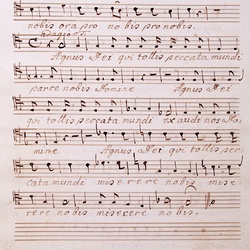 nobis ora pro nobis pro nobis.
Adagio
Agnus Dei qui tollis peccata mundi
parce nobis Domine Agnus Dei
qui tollis peccata mundi exaudi nos Do,
mine Agnus Dei qui tollis pec,
cata mundi miserere nobis mise
rere nobis miserere nobis.